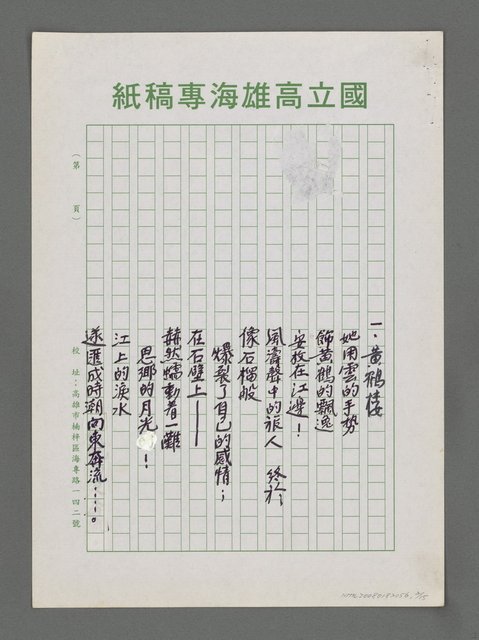 國立高雄海專稿紙
（第　頁）
一、黃鶴樓
她用雲的手勢
飾黃鶴的飄逸
安放在江邊！
風濤聲中的旅人　終於
像石榴般
爆裂了自己的感情；
在石壁上——
赫然蠕動着一灘
思鄉的月光！
江上的淚水
遂匯成時潮向東奔流……。
校址：高雄市楠梓區海專路一四二號